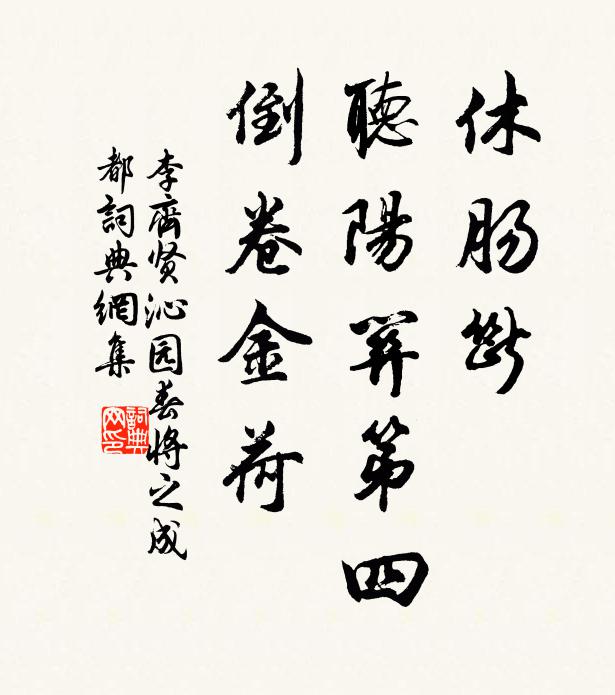 休肠断
聽陽關第四
倒卷金荷
李齊贤沁园春將之成
都詞典網集
詞典
网印